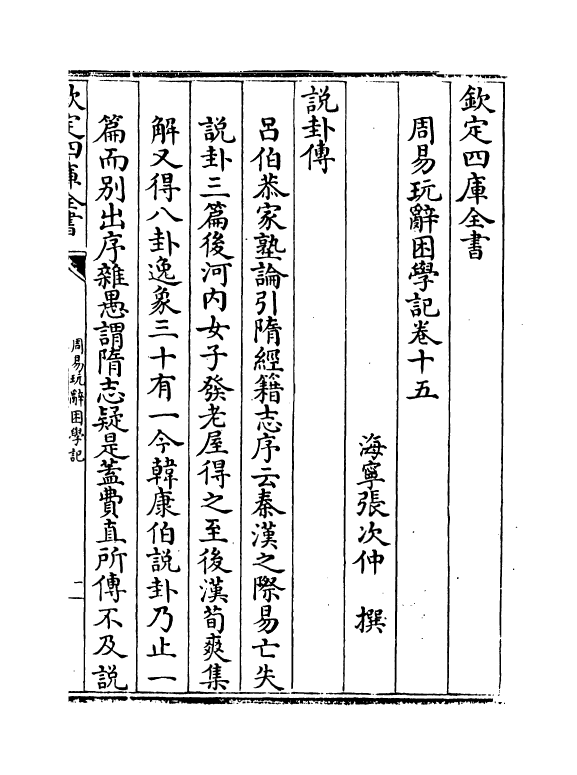 欽定四庫全書
周易玩辭困學記卷十五
海寧張次仲 撰
說卦傳
呂伯恭家塾論引隋經籍志序云秦漢之際易亡失
說卦三篇後河内女子發老屋得之至後漢荀爽集
解又得八卦逸象三十有一今韓康伯說卦乃止一
篇而别出序雜愚謂隋志疑是蓋費直所傳不及說
欽定四庫全書
周易玩辭困學記